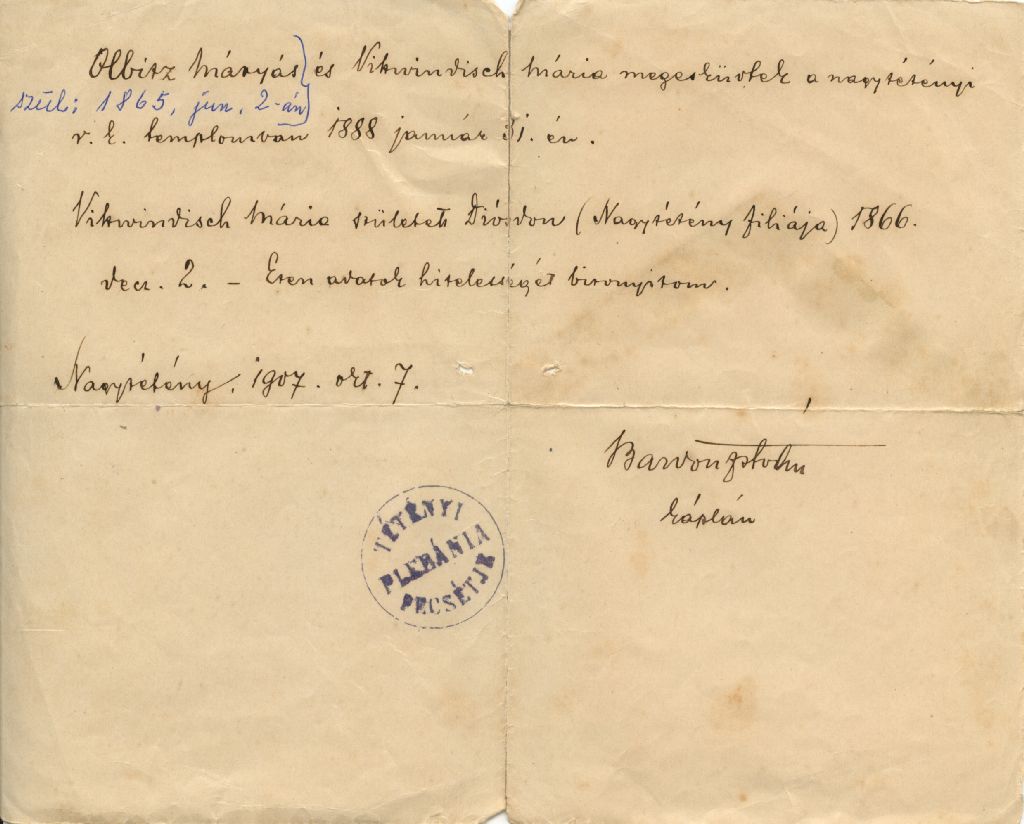 Olbitz Mátyás és Vikwindisch Mária megesküvtek a nagytétényi
szül: 1865, jun. 2-án
r. k. templomban 1888 január 31. én.
Vikwindisch Mária született Diósdon (Nagytétény filiája) 1866.
decz. 2. – Ezen adatok hitelességét bizonyitom.
Nagytétény. 1907. okt. 7.
káplán
TÉTÉNYI
PLEBÁNIA
PECSÉTJE